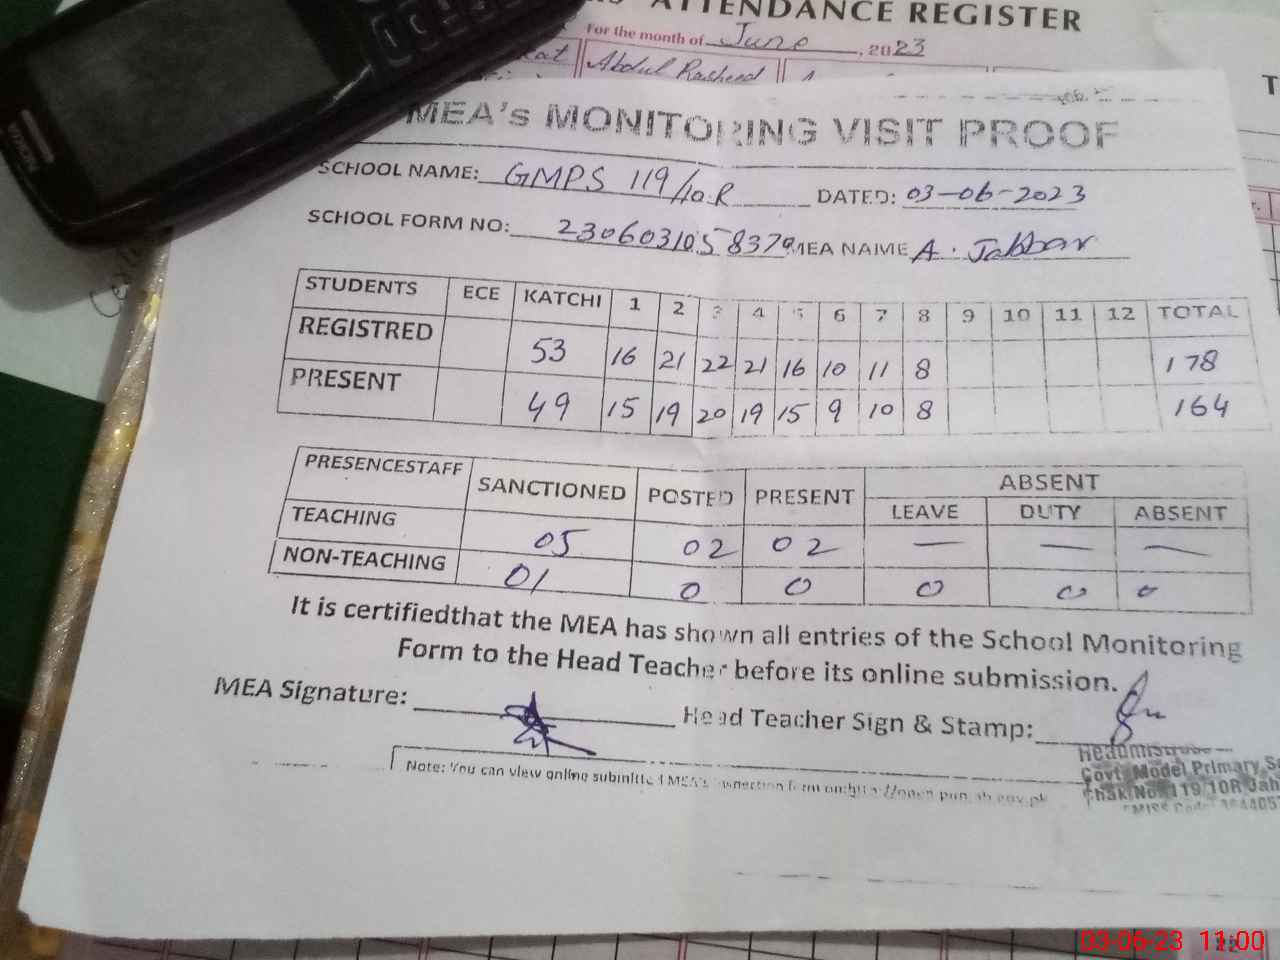 ATTENDANCE REGISTER
For the month of June, 2023
Abdul Rasheed
MEA's MONITORING VISIT PROOF
SCHOOL NAME: GMPS 119/10.R DATED: 03-06-2023
SCHOOL FORM NO: MEA NAME A. Jabbar
STUDENTS ECE KATCHI 1 2 3 4 5 6 7 8 9 10 11 12 TOTAL
REGISTRED 53 16 21 22 21 16 10 11 8 178
PRESENT 49 15 19 20 19 15 9 10 8 164
PRESENCESTAFF SANCTIONED POSTED PRESENT ABSENT
LEAVE DUTY ABSENT
TEACHING 05 02 02 — — —
NON-TEACHING 01 0 0 0 0 0
It is certifiedthat the MEA has shown all entries of the School Monitoring
Form to the Head Teacher before its online submission.
MEA Signature: Head Teacher Sign & Stamp:
Headmistress
Govt. Model Primary
Chak No. 119/10R
Note: You can view online submitted MEA's
03-06-23 11:00